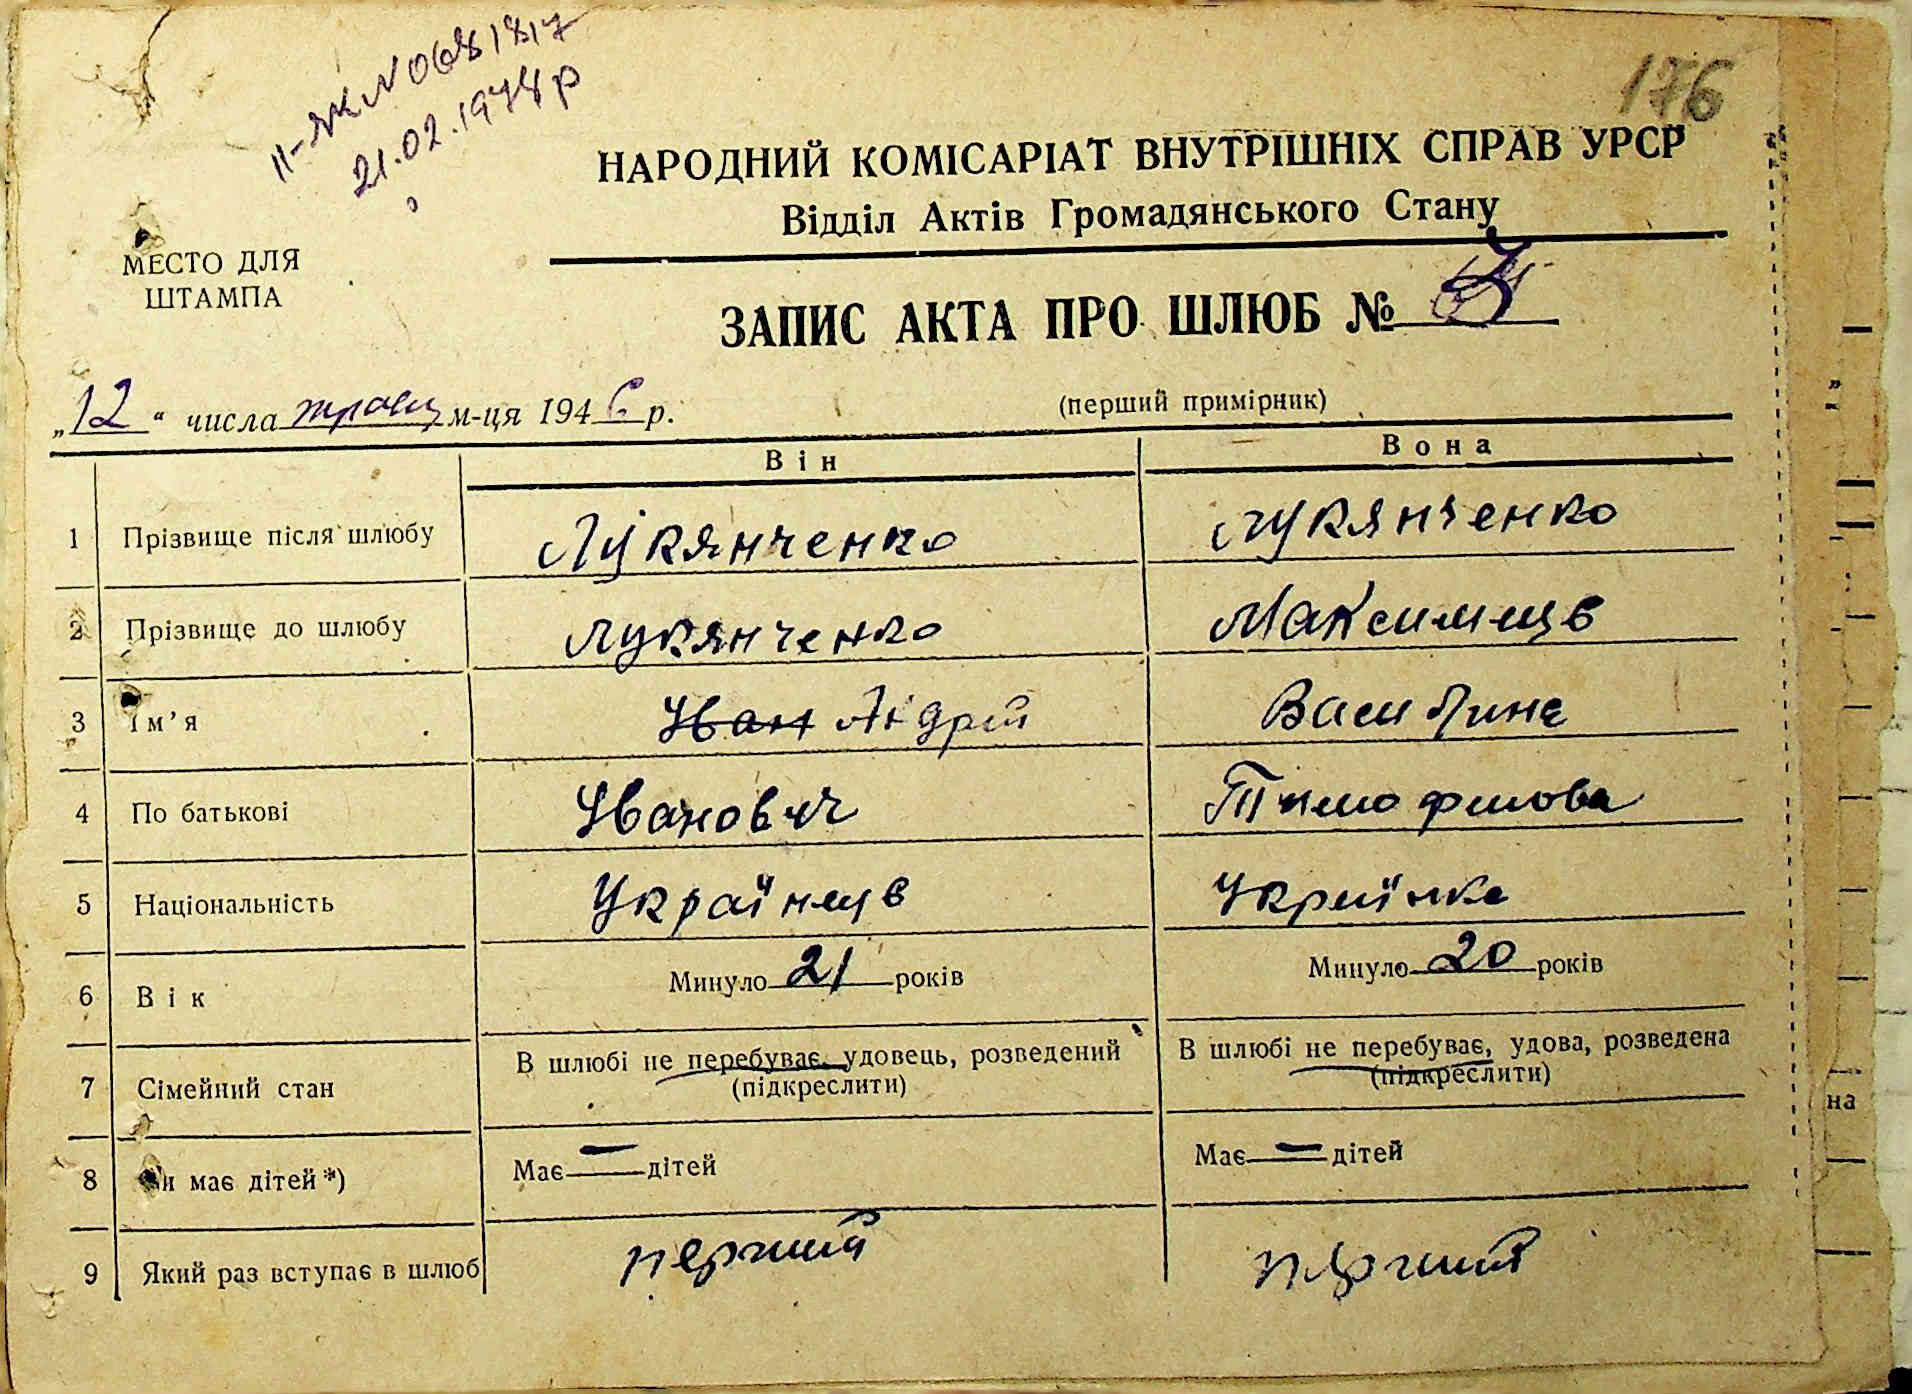 II-ЯК № 0681817
21.02.1978 р
176
НАРОДНИЙ КОМІСАРІАТ ВНУТРІШНІХ СПРАВ УРСР
Відділ Актів Громадянського Стану
МЕСТО ДЛЯ
ШТАМПА
ЗАПИС АКТА ПРО ШЛЮБ №
„12“ числа травц м-ця 1946 р.
(перший примірник)
Він Вона
1 Прізвище після шлюбу Лукянченко Лукянченко
2 Прізвище до шлюбу Лукянченко Максимець
3 Ім’я Иван Андрій Василина
4 По батькові Иванович Тимофіїова
5 Національність Українець Українка
6 Вік Минуло 21 років Минуло 20 років
7 Сімейний стан В шлюбі не перебуває, удовець, розведений В шлюбі не перебуває, удова, розведена
(підкреслити) (підкреслити)
8 и має дітей*) Має — дітей Має — дітей
9 Який раз вступає в шлюб перший перший
на